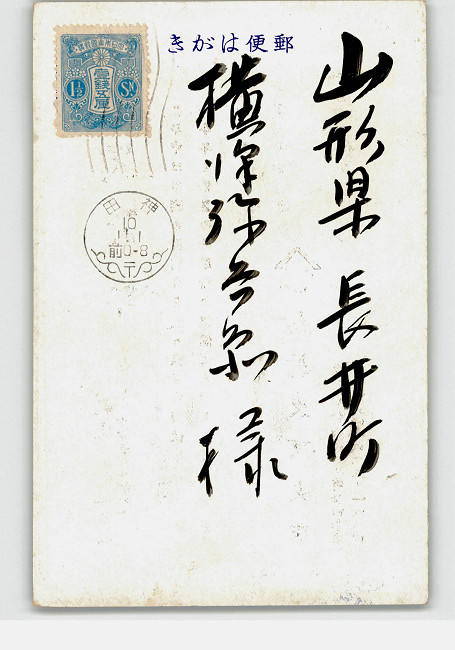 きがは便郵
山形県長井町
横澤弥兵衛様
1½ Sn.
壹錢五厘
田神
10
1.1
前0-8